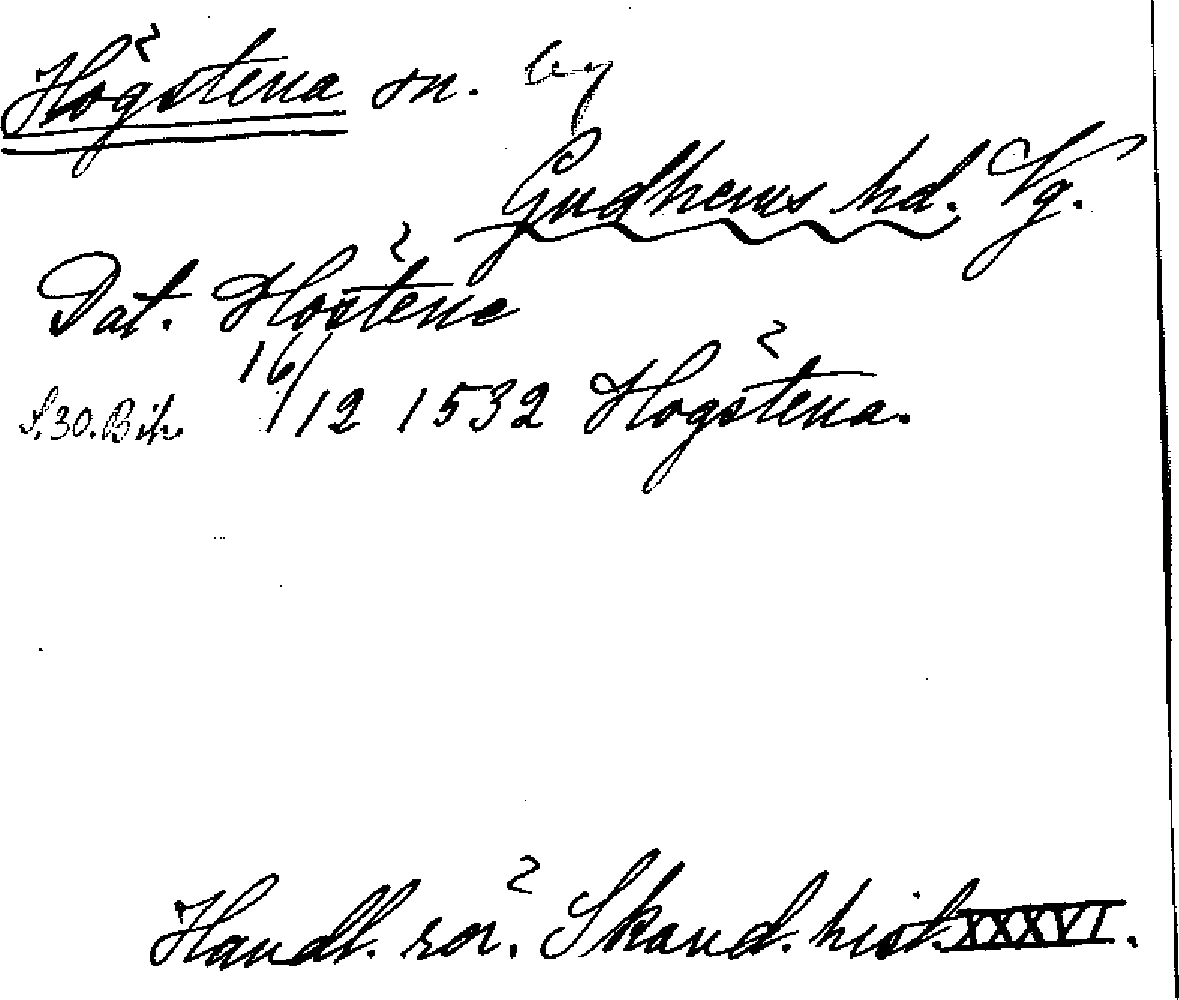 Högstena sn. by
Gudhems hd. Vg.
Dat. Höstene
S. 30. Bih. 16/12 1532 Högstena.
Handl. rör. Skand. hist. XXXVI.